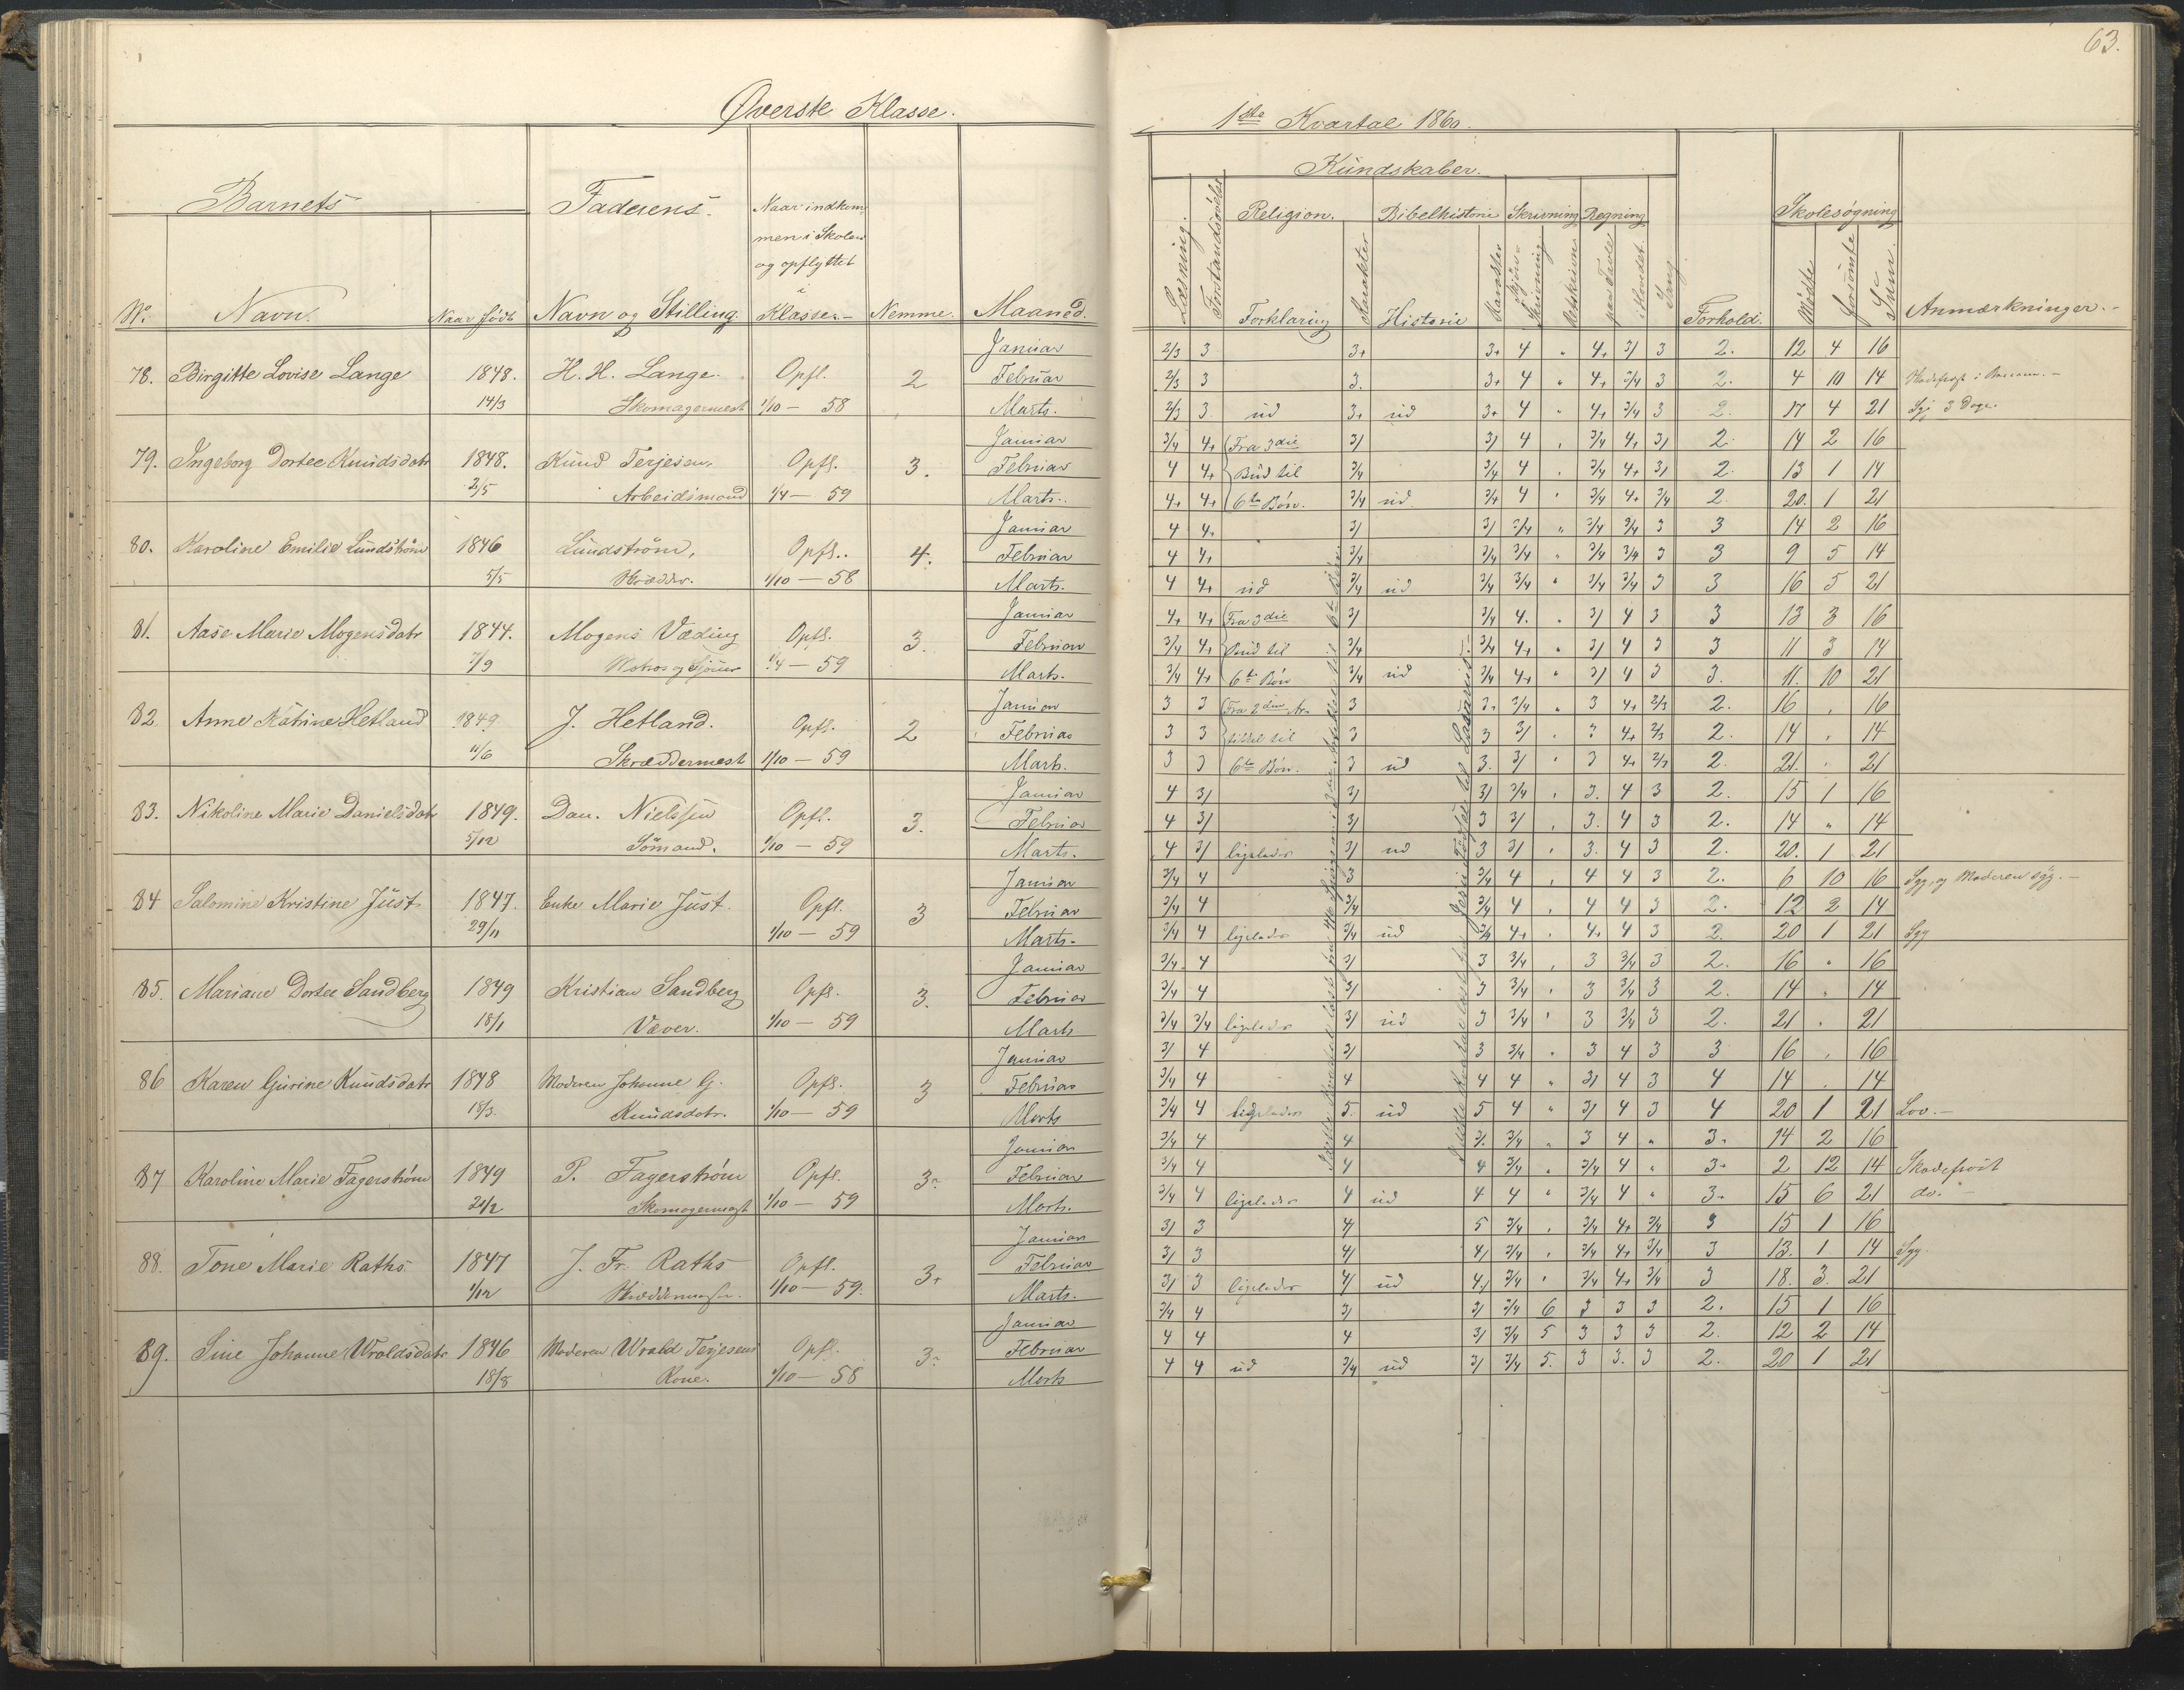 63.
Øverste Klasse.
1ste Kvartal 1860.
Barnets
Faderens.
Naar indkom-
men i Skolen
og opflyttet
i
Klassen
No. Navn. Naar født Navn og Stilling Nemme. Maaned.
Kundskaber.
Læsning. Forstandsøvelse Religion. Bibelhistorie Skrivning Regning Skolesøgning
Forklaring Karakter Historie Karakter Skjøn-skrivning Retskrivn. paa Tavle i Hovedet. Sang Forhold. Mødte Forsømte Sum. Anmærkninger.
78. Birgitte Lovise Lange 1848. H. H. Lange. Opfl. 2 Januar 2/3 3 3+ 3+ 4 " 4+ 3/ 3 2. 12 4 16
Februar 2/3 3 3. 3+ 4 " 4+ 3/4 3 2. 4 10 14
14/3 Skomagermest 1/10 – 58 Marts. 2/3 3. ud 3+ ud 3+ 4 " 4+ 3/4 3 2. 17 4 21 Syg 3 Dage.
79. Ingeborg Dortee Knudsdatr 1848. Knud Terjesen, Opfl. 3. Januar 3/4 4+ Fra 3die 3/ 3/ 4 " 3/4 4+ 3/ 2. 14 2 16
Februar 4 4+ Bud til 3/4 3/4 4 " 3/4 4+ 3/ 2. 13 1 14
2/5 Arbeidsmand 1/4 – 59 Marts. 4+ 4+ 6te Bøn. 3/4 ud 3/4 4 " 3/4 4+ 3/4 2. 20. 1 21
80. Karoline Emilie Lundstrøm 1846 Lundstrøm, Opfl. 4. Januar 4 4+ 3/ 3/ 3/4 " 3/4 3/4 3 3 14 2 16
Februar 4 4+ 3/4 3/4 3/4 " 3/4 3/4 3 3 9 5 14
5/5 Skrædder. 1/10 – 58 Marts. 4 4+ ud 3/4 ud 3/4 3/4 " 3/4 3/4 3 3 16 5 21
81. Aase Marie Mogensdatr 1844. Mogens Væding Opfl. 3. Januar 4+ 4+ Fra 3die 3/ 3/4 4. " 3/ 4 3 3 13 3 16
Februar 3/4 4+ Bud til 3/4 3/4 4+ " 3/ 4 3 3 11 3 14
7/9 1/4 – 59 Marts. 3/4 4+ 6te Bøn 3/4 ud 3/4 4+ " 3/ 4 3 3. 11. 10 21
82. Anne Katrine Hetland 1849. J. Hetland. Opfl. 2 Januar 3 3 Fra 2den Ar- 3 3+ 3/4 " 3 4+ 2/3 2. 16 " 16
Februar 3 3 tikkel til 3 3 3/ " 3 4+ 2/3 2. 14 " 14
11/6 Skræddermest 1/10 – 59 Marts. 3 3 6te Bøn. 3 ud 3. 3/ " 3 4+ 2/3 2. 21. " 21
83. Nikoline Marie Danielsdatr 1849. Dan. Nielssen Opfl. 3. Januar 4 3/ 3/ 3/ 3/4 " 3. 4 3 2. 15 1 16
Februar 4 3/ 3/ 3 3/ " 3. 4 3 2. 14 " 14
5/12 Sømand. 1/10 – 59 Marts. 4 3/ ligeledes 3/ ud 3 3/ " 3. 4 3 2. 20. 1 21
84 Salomine Kristine Just 1847. Enke Marie Just. Opfl. 3 Januar 3/4 4 3 3/4 4 " 4 4 3 2. 6 10 16 Syg, og Moderen syg. –
Februar 3/4 4 3/4 3/4 4 " 4 4 3 2. 12 2 14
29/11 1/10 – 59 Marts. 3/4 4 ligeledes 3/4 ud 3/4 4+ " 4+ 4 3 2. 20 1 21 Syg
85. Mariane Dortee Sandberg 1849 Kristian Sandberg Opfl. 3. Januar 3/4 4 3/ 3 3/4 " 3 3/4 3 2. 16 " 16
Februar 3/4 4 3/ 3 3/4 " 3 3/4 3 2. 14 " 14
18/1 Væver. 1/10 – 59 Marts 3/4 3/4 ligeledes 3/ ud 3 3/4 " 3 3/4 3 2. 21 " 21
86 Karen Gurine Knudsdatr 1848 Moderen Johanne G. Opfl. 3 Januar 3/ 4 3/ 3 3/4 " 3 4 3 3 16 " 16
Februar 3/4 4 4 4 4 " 3/ 4 3 4 14 " 14
18/3 Knudsdatr. 1/10 – 59 Marts 3/4 4 ligeledes 5. ud 5 4 " 3/ 4 3 4 20 1 21 Lov. –
87 Karoline Marie Fagerstrøm 1849 P. Fagerstrøm Opfl. 3. Januar 3/4 4 4 3/ 3/4 " 3 4 " 3+ 14 2 16
Februar 3/4 4 4 4 3/4 " 3/4 4 " 3+ 2 12 14 Skadefrost
1/10 – 59 Marts. 3/4 4 ligeledes 4 ud 4 4 " 3/4 4 " 3+ 15 6 21 do. –
88. Tone Marie Raths 1847 J. Fr. Raths Opfl. 3+ Januar 3/ 3 4/ 5 3/4 " 3/4 4+ 3/4 3 15 1 16
Februar 3/ 3 4/ 4/ 3/4 " 3/4 4+ 3/4 3 13. 1 14 Syg.
1/12 1/10 – 59. Marts. 3/ 3 ligeledes 4/ ud 4/ 3/4 " 3/4 4+ 3/4 3 18. 3. 21
89. Sine Johanne Wroldsdatr 1846 Moderen Wrold Terjesens Opfl. 3. Januar 3/4 4 3/ 3/ 3/4 6 3 3 3 2. 15 1 16
Februar 4 4 4 3/ 3/4 5 3 3 3 2. 12 2 14
18/8 Kone. 1/10 – 58 Marts 4 4 ud 3/4 ud 3/ 3/4 5. 3 3. 3 2. 20 1 21